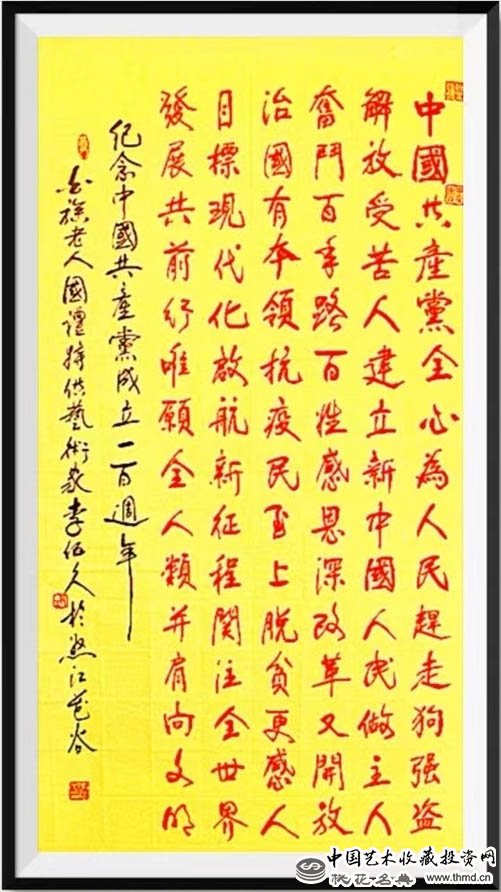 中國共產黨全心為人民趕走狗强盗
解放受苦人建立新中國人民做主人
奮鬥百年路百姓感恩深改革又開放
治國有本領抗疫民至上脱贫更感人
目標現代化啟航新征程関注全世界
發展共前行唯願全人類并肩向文明
纪念中國共產黨成立一百週年
白族老人國禮特供藝術家李伍久於怒江花谷
中国艺术收藏投资网
桃花名典 www.thmd.cn